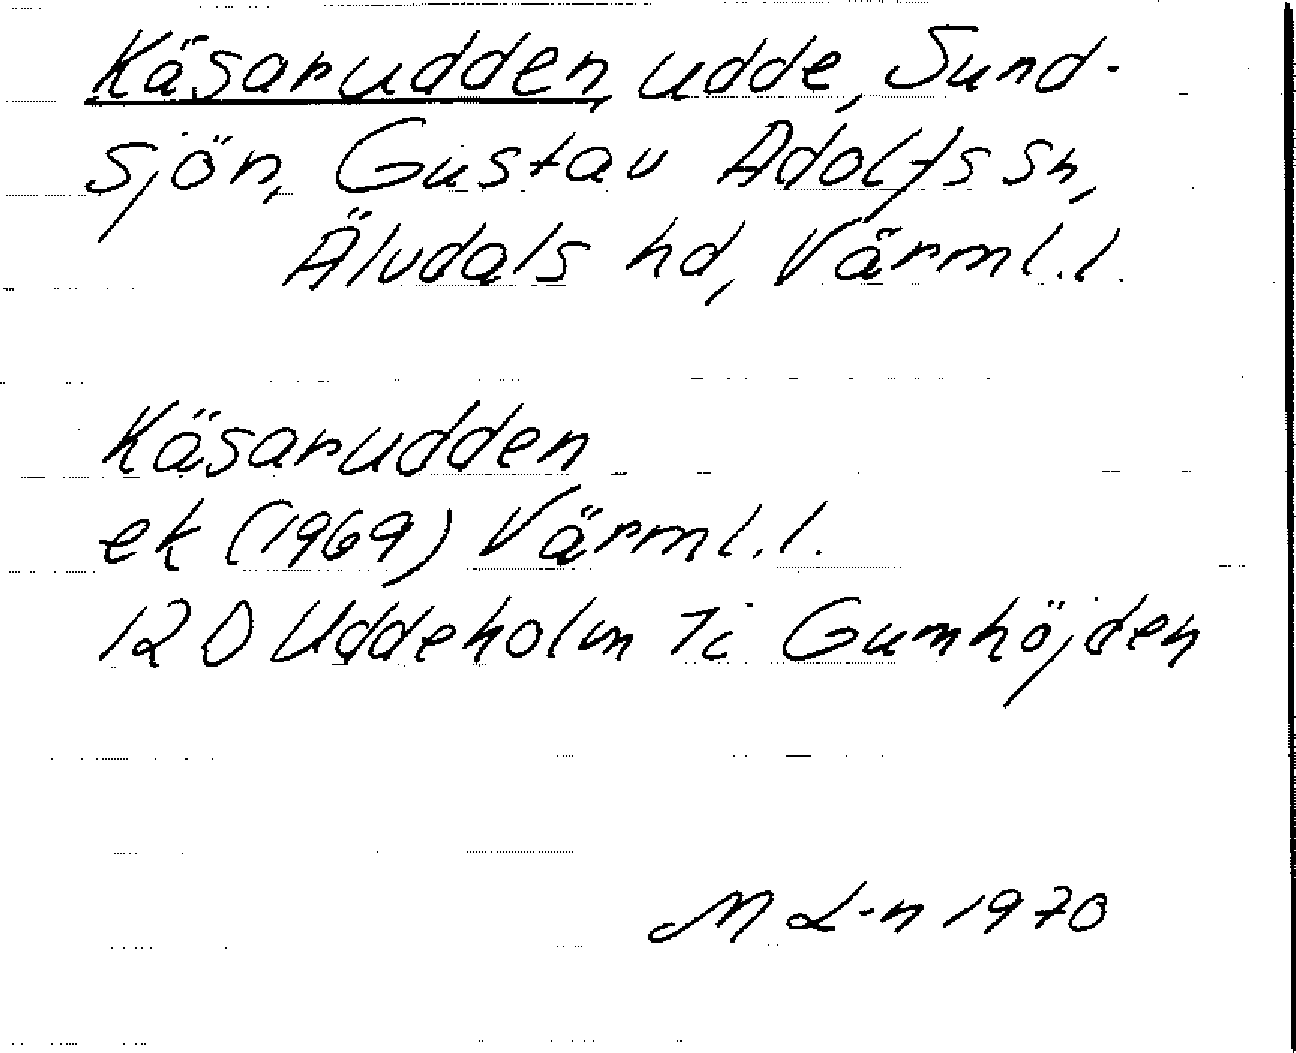 Käsarudden, udde, Sund-
sjön, Gustav Adolfs sn,
Älvdals hd, Värml. l.
Käsarudden
ek (1969) Värml. l.
12 D Uddeholm 7c Gumhöjden
M L-n 1970